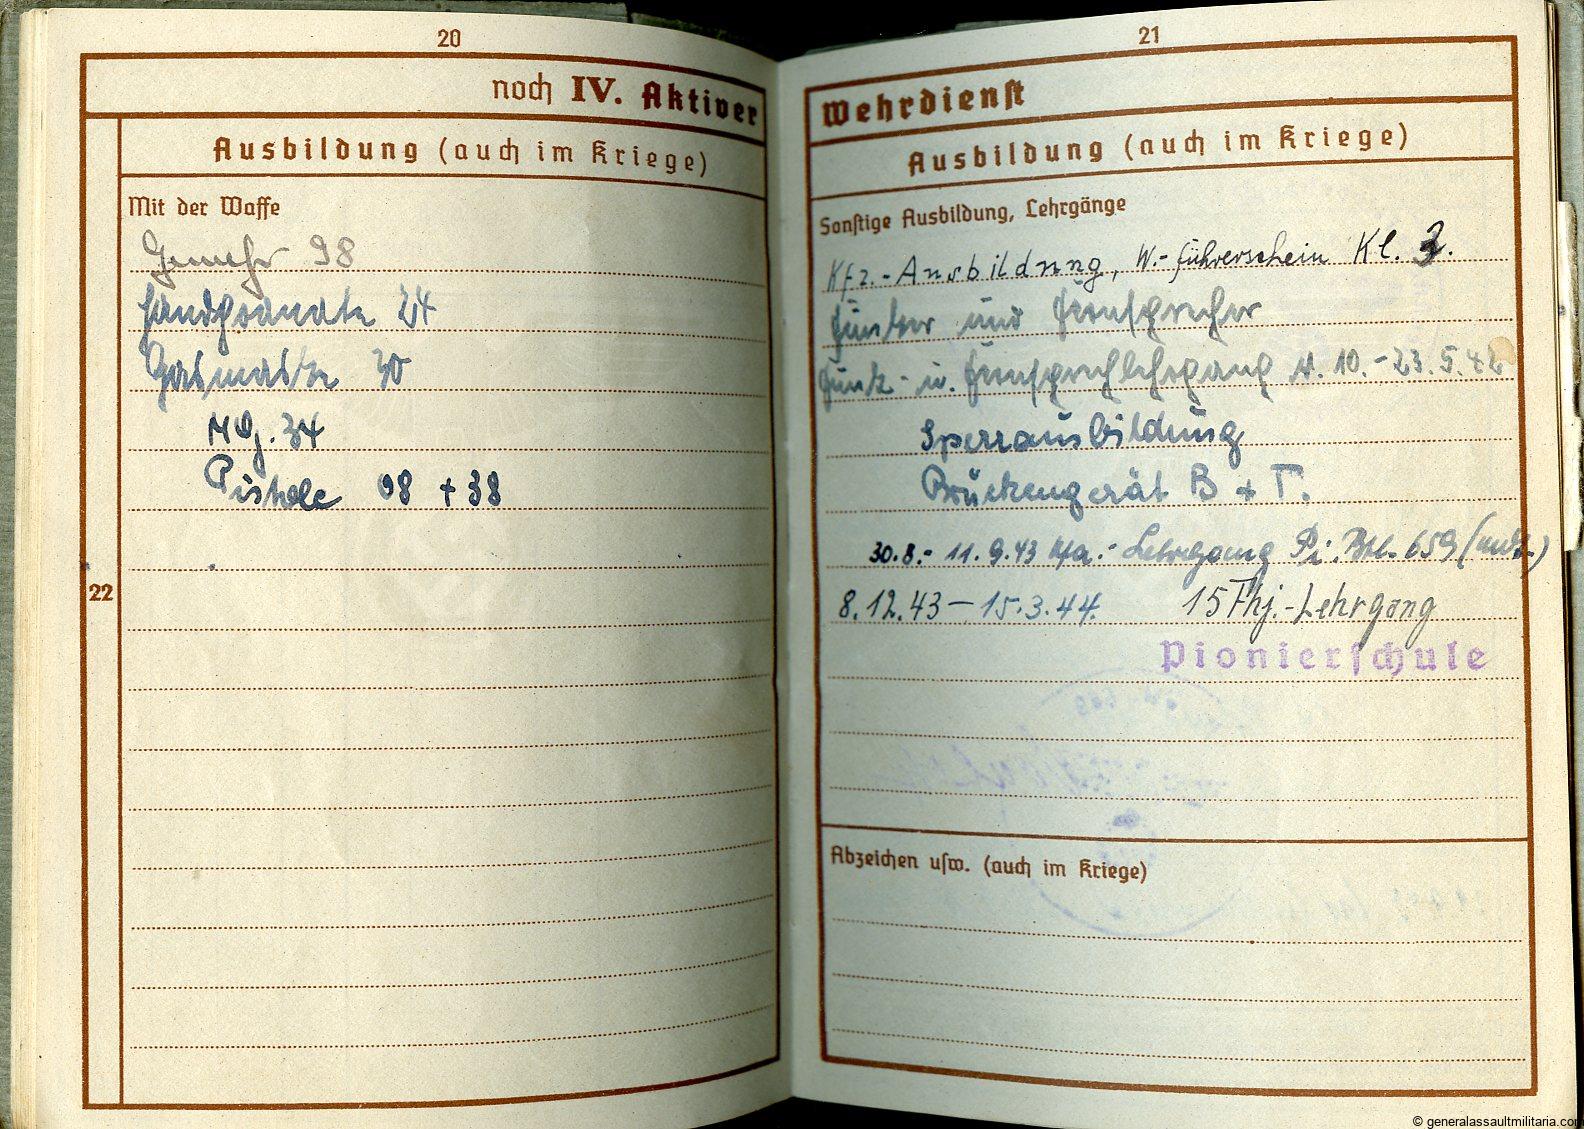 20
noch IV. Aktiver
Ausbildung (auch im Kriege)
Mit der Waffe
Gewehr 98
Handgranate 24
Gasmaske 30
MG. 34
Pistole 08 + 38
22
21
Wehrdienst
Ausbildung (auch im Kriege)
Sonstige Ausbildung, Lehrgänge
Kfz.-Ausbildung, W.-führerschein Kl. 3.
Funker und Fernsprecher
Funk- u. Fernsprechlehrgang 4. 10.-23.5.42
Sperrausbildung
Brückengerät B + T.
30.8.- 11.9.43 Lehrgang Pi. Btl. 659
8.12.43 – 15.3.44. 15 Fhj.-Lehrgang
Pionierschule
Abzeichen usw. (auch im Kriege)
© generalassaultmilitaria.com